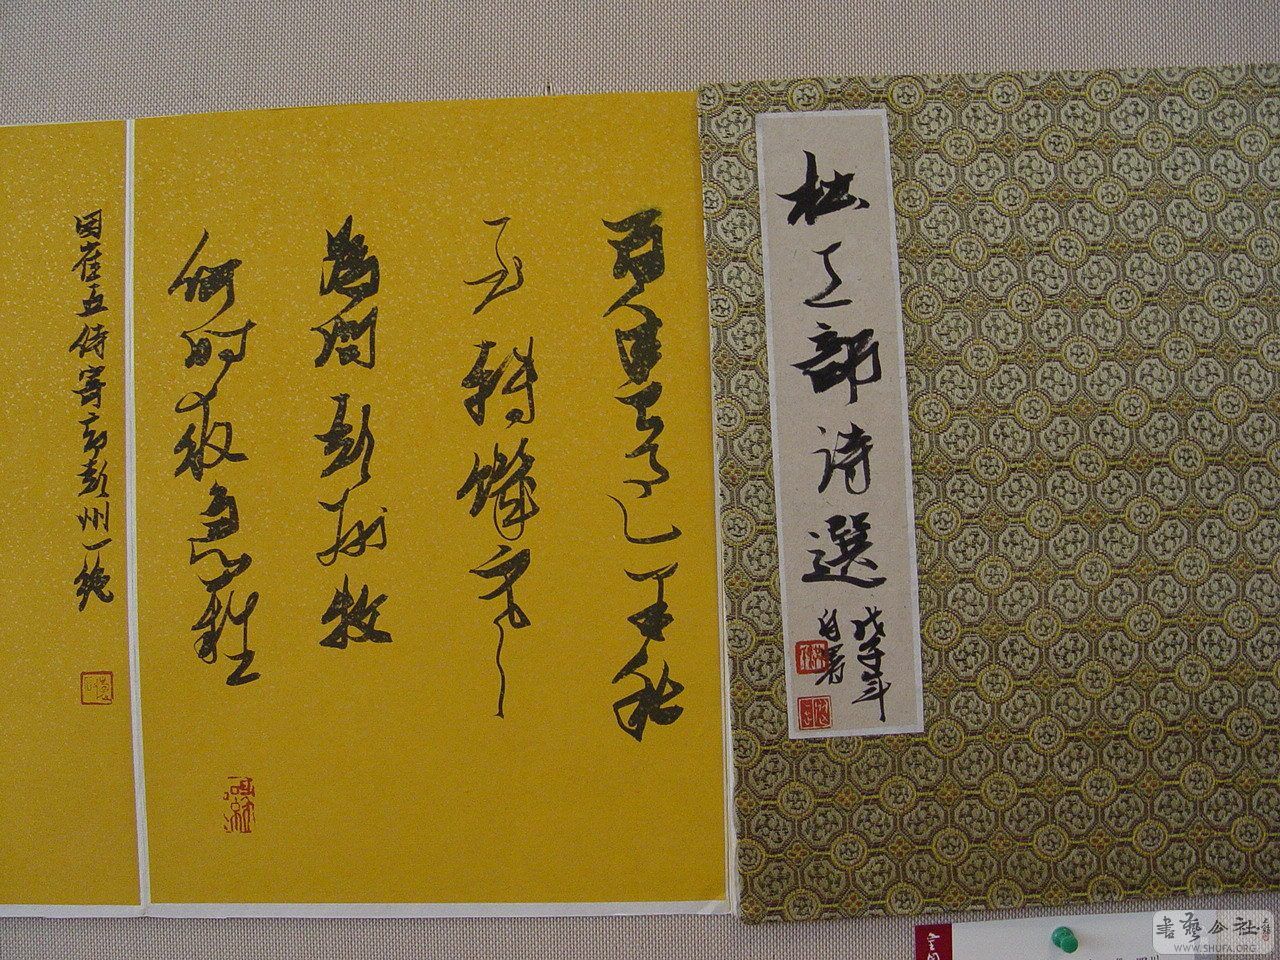 杜工部詩選
戊子年
自署
百年過已半秋
至轉饑寒
為問彭州牧
何時救急難
因崔五侍寄高彭州一絕
書藝公社
WWW.SHUFA.ORG